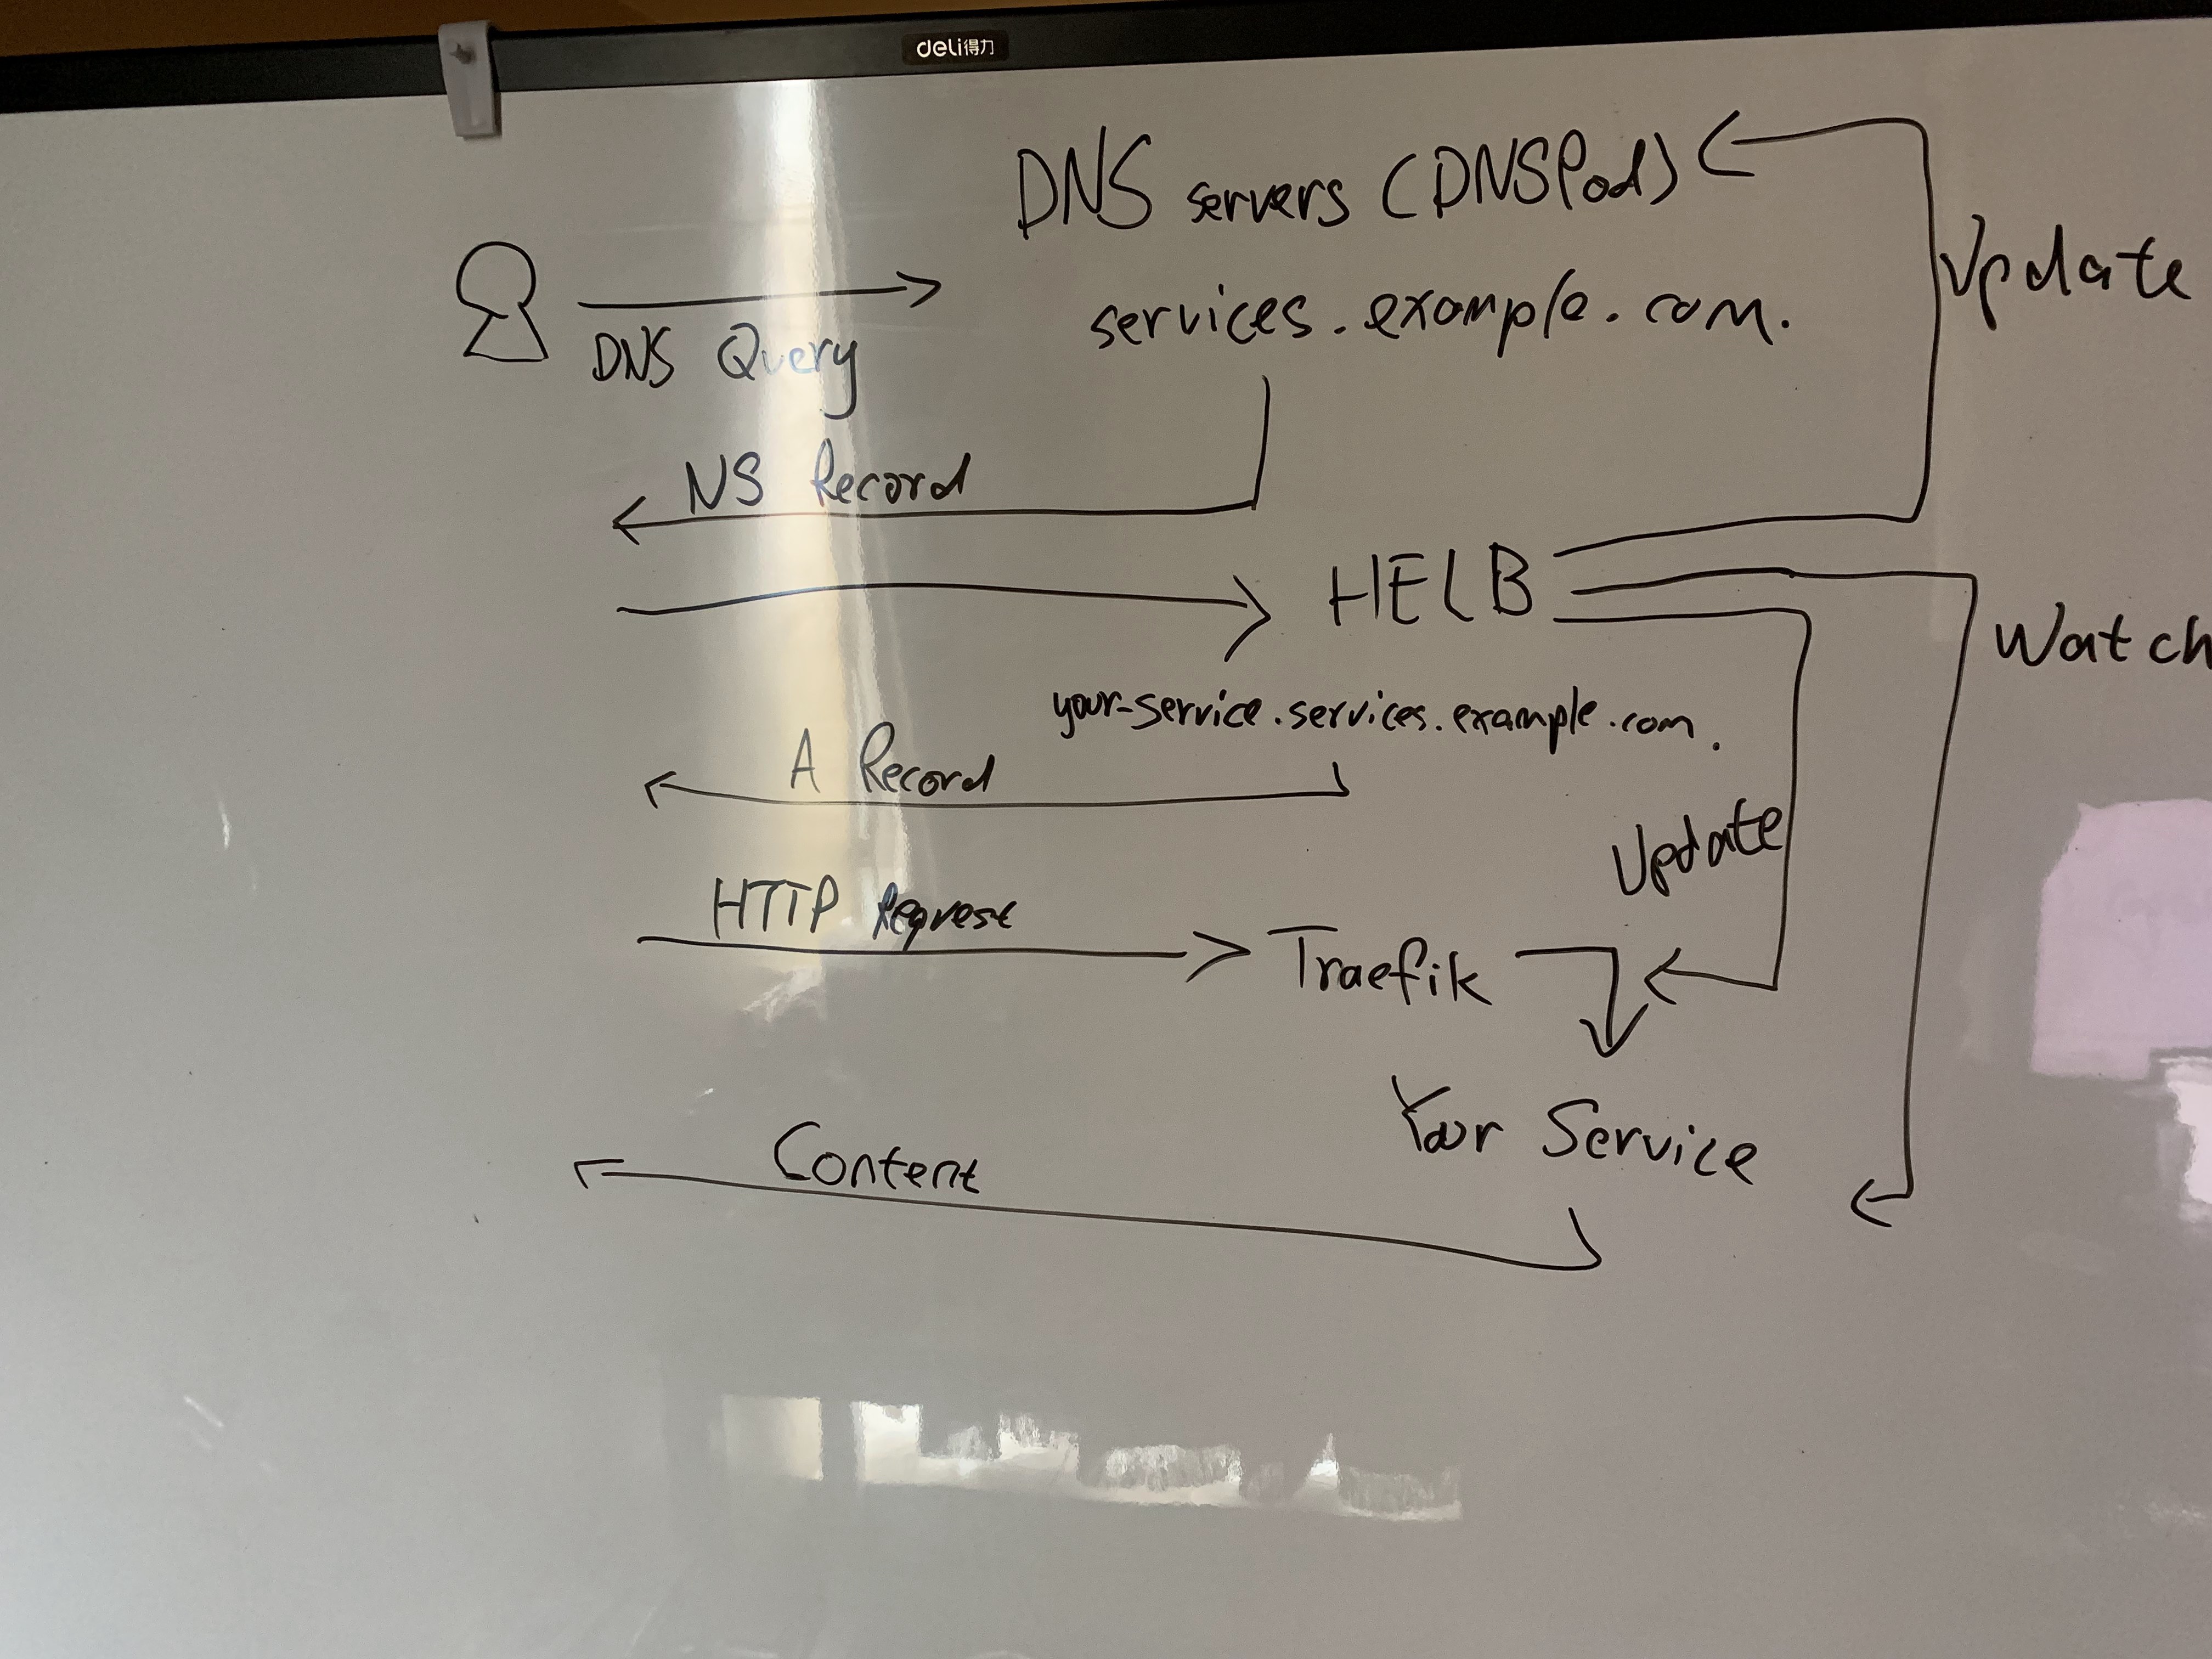 deli得力
DNS servers (DNSPod)
Update
services.example.com.
DNS Query
NS Record
HELB
Watch
your-service.services.example.com.
A Record
Update
HTTP Request
Traefik
Your Service
Content